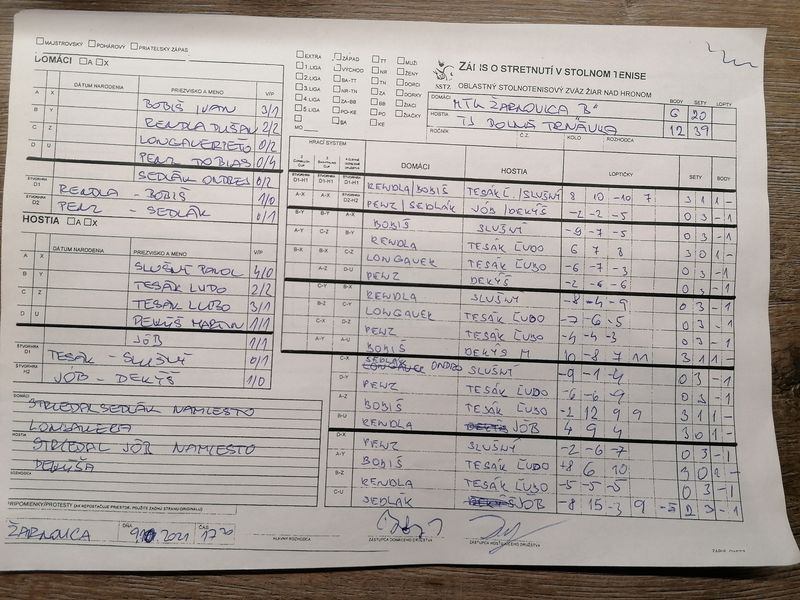 MAJSTROVSKÝ POHÁROVÝ PRIATEĽSKÝ ZÁPAS
DOMÁCI A X
DÁTUM NARODENIA PRIEZVISKO A MENO V/P
A X BOBIŠ IVAN 3/1
B Y RENDLA DUŠAN 2/2
C Z LONGAUER ETO 0/2
D U PENZ TOBIAS 0/4
SEDLÁK ONDREJ 0/2
ŠTVORHRA D1 RENDLA - BOBIŠ 1/0
D2 PENZ - SEDLÁK 0/1
HOSTIA A X
DÁTUM NARODENIA PRIEZVISKO A MENO V/P
A X SLUŠNÝ PAVOL 4/0
B Y TESÁK ĽUDO 2/2
C Z TESÁK ĽUBO 3/1
D U DEKÝŠ MARTIN 1/1
JÓB 1/1
ŠTVORHRA D1 TESÁK - SLUŠNÝ 0/1
H2 JÓB - DEKÝŠ 1/0
DOMÁCI
STRIEDAL SEDLÁK NAMIESTO
LONGAUERA
HOSTIA
STRIEDAL JÓB NAMIESTO
DEKÝŠA
ROZHODCA
PRIPOMIENKY/PROTESTY (AK NEPOSTAČUJE PRIESTOR, POUŽITE ZADNÚ STRANU ORIGINÁLU)
ŽARNOVICA DŇA 9.10.2021 ČAS 17 20
EXTRA ZÁPAD TT MUŽI
1.LIGA VÝCHOD NR ŽENY
2.LIGA BA-TT TN DORCI
3.LIGA NR-TN ZA DORKY
4.LIGA ZA-BB BB ŽIACI
5.LIGA PO-KE PO ŽIAČKY
BA KE
MO
ZÁPIS O STRETNUTÍ V STOLNOM TENISE
SSTZ OBLASTNÝ STOLNOTENISOVÝ ZVÄZ ŽIAR NAD HRONOM
DOMÁCI MTK ŽARNOVICA "B" BODY 6 SETY 20 LOPTY
HOSTIA TJ DOLNÁ TRNÁVKA 12 39
ROČNÍK Č.Z. KOLO ROZHODCA
HRACÍ SYSTÉM DOMÁCI HOSTIA LOPTIČKY SETY BODY
D1-H1 D1-H1 D1-H1 RENDLA/BOBIŠ TESÁK Ľ./SLUŠNÝ 8 10 -10 7 3 1 1 -
A-X A-X D2-H2 PENZ/SEDLÁK JÓB/DEKÝŠ -2 -2 -5 0 3 - 1
B-Y B-Y A-X BOBIŠ SLUŠNÝ -9 -7 -5 0 3 - 1
A-Y C-Z B-Y RENDLA TESÁK ĽUDO 6 7 8 3 0 1 -
B-X B-X C-Z LONGAUER TESÁK ĽUBO -6 -7 -3 0 3 - 1
A-Z D-U PENZ DEKÝŠ -2 -6 -6 0 3 - 1
C-Y B-X RENDLA SLUŠNÝ -8 -4 -9 0 3 - 1
B-Z C-Y LONGAUER TESÁK ĽUDO -7 -6 -5 0 3 - 1
C-X D-Z PENZ TESÁK ĽUBO -4 -4 -3 0 3 - 1
A-Y A-U BOBIŠ DEKÝŠ M 10 -8 7 11 3 1 1 -
C-X SEDLÁK ONDRO SLUŠNÝ -9 -1 -4 0 3 - 1
D-Y PENZ TESÁK ĽUDO -6 -6 -9 0 3 - 1
A-Z BOBIŠ TESÁK ĽUBO -2 12 9 9 3 1 1 -
B-U RENDLA JÓB 4 9 4 3 0 1 -
D-X PENZ SLUŠNÝ -2 -6 -7 0 3 - 1
A-Y BOBIŠ TESÁK ĽUDO +8 6 10 3 0 1 -
B-Z RENDLA TESÁK ĽUBO -5 -5 -5 0 3 - 1
C-U SEDLÁK JÓB -8 15 -3 9 -5 2 3 - 1
HLAVNÝ ROZHODCA ZÁSTUPCA DOMÁCEHO DRUŽSTVA ZÁSTUPCA HOSŤUJÚCEHO DRUŽSTVA